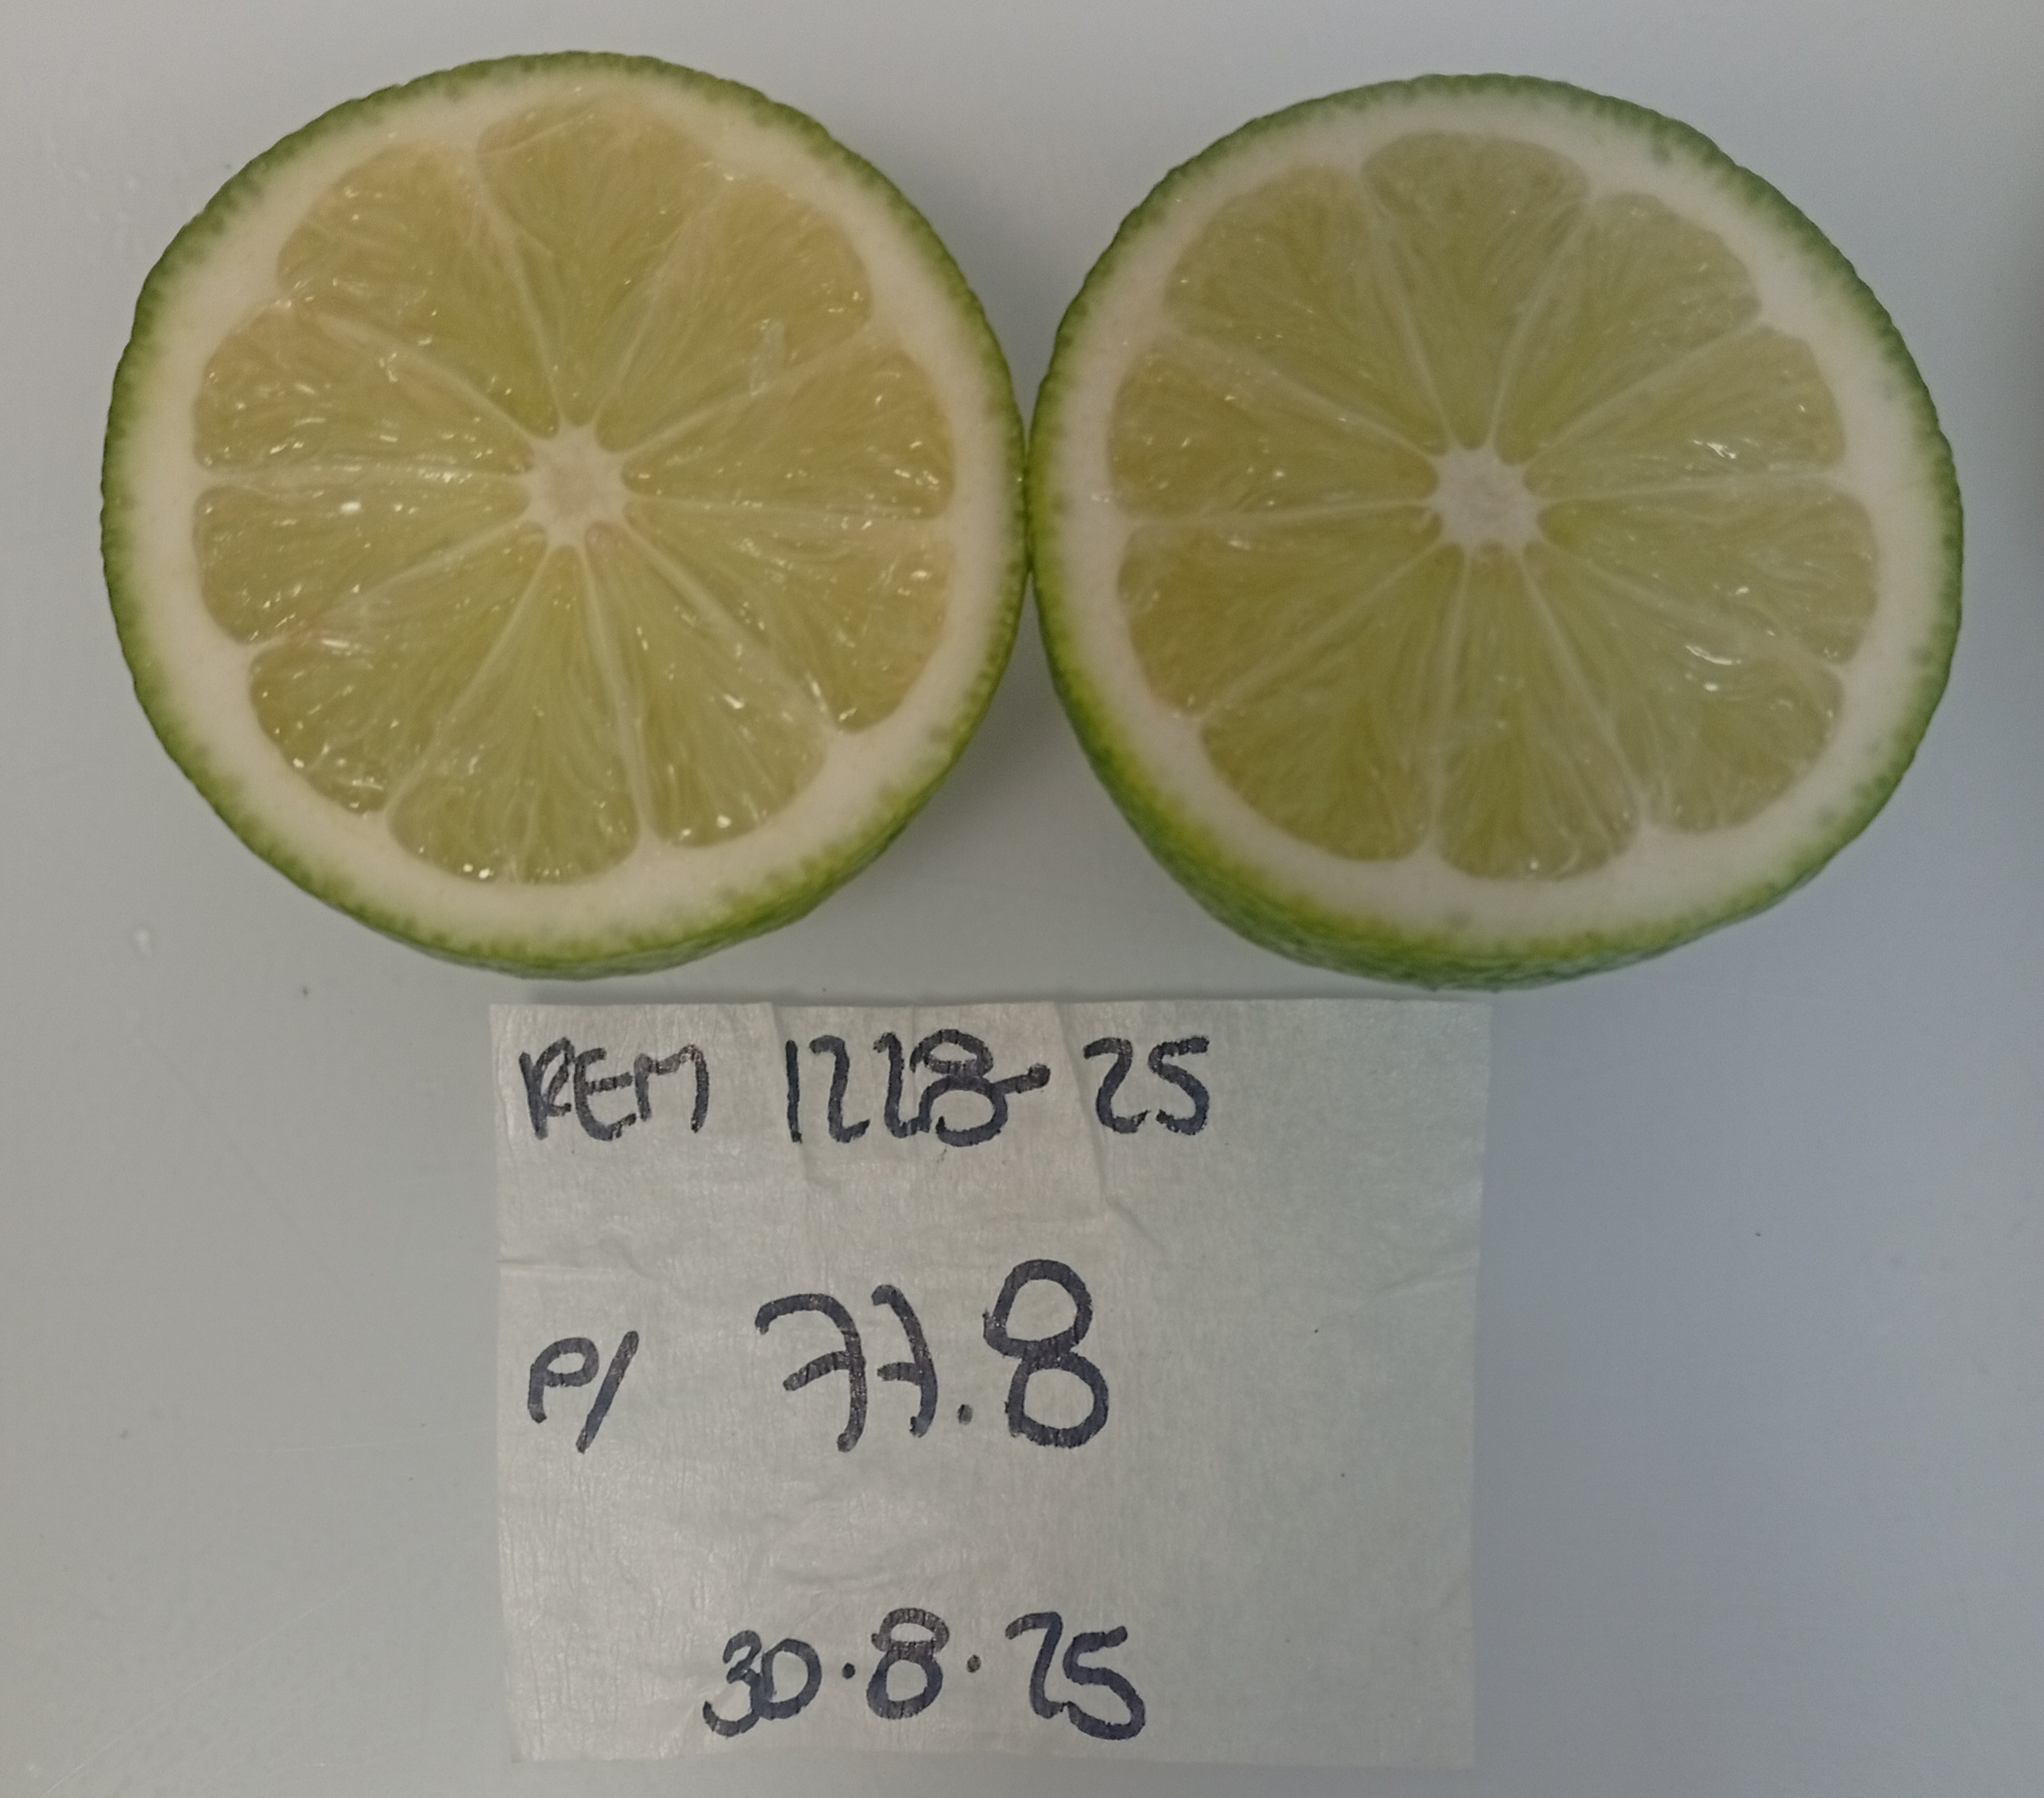 REM 1228-25
P/ 77.8
30.8.25